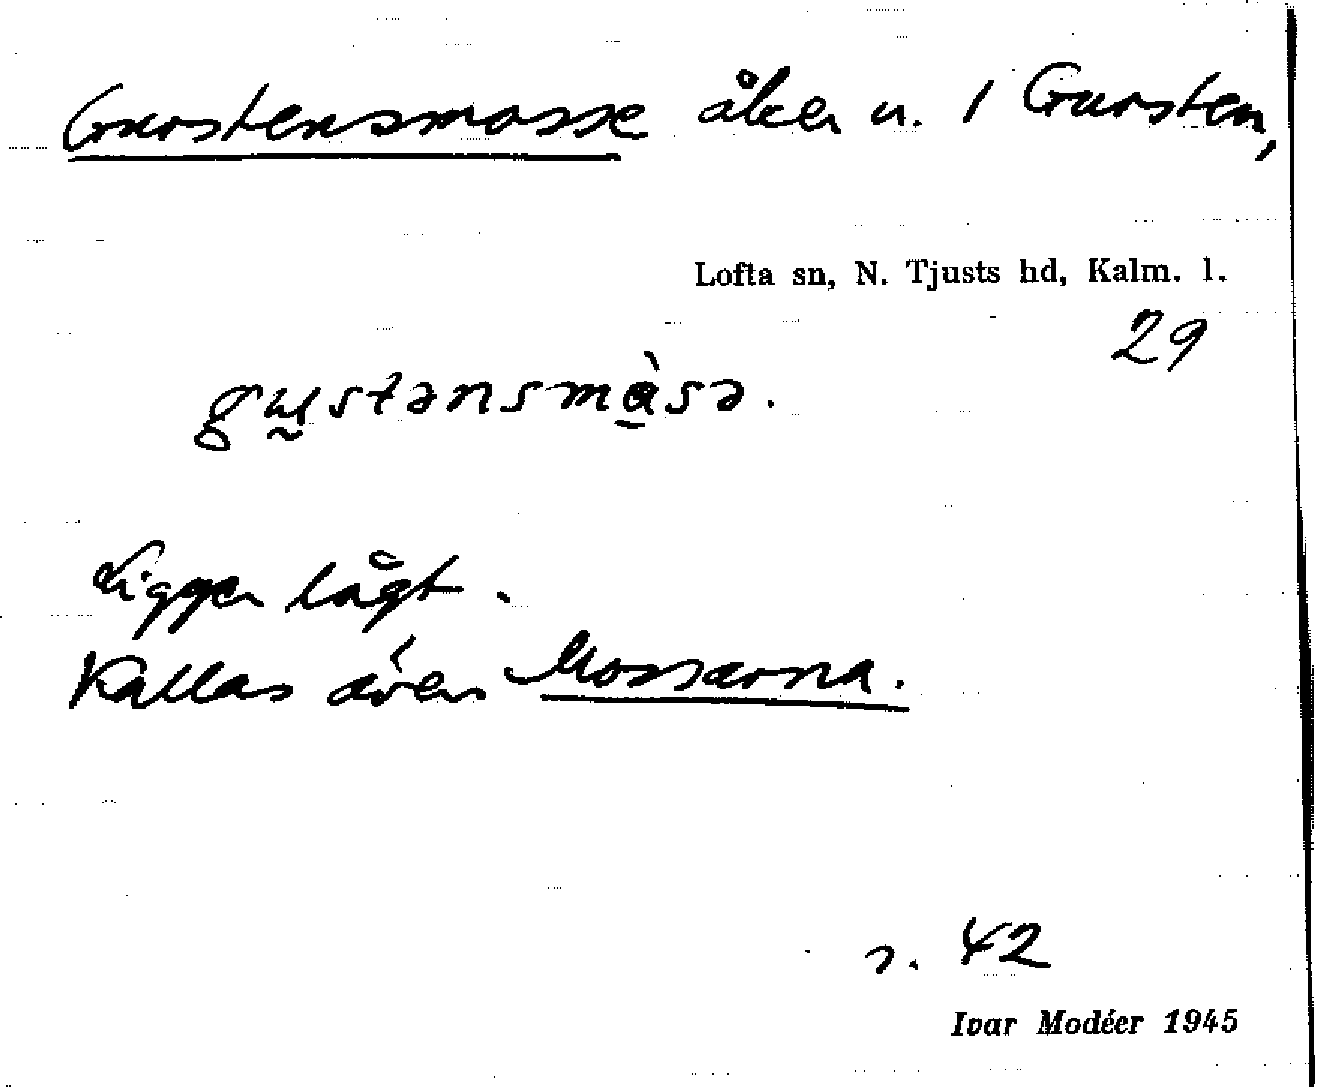 Gustensmosse åker u. 1 Gursten,
Lofta sn, N. Tjusts hd, Kalm. l.
29
gustənsmåsə.
Ligger lågt.
Kallas även Mossarna.
s. 42
Ivar Modéer 1945